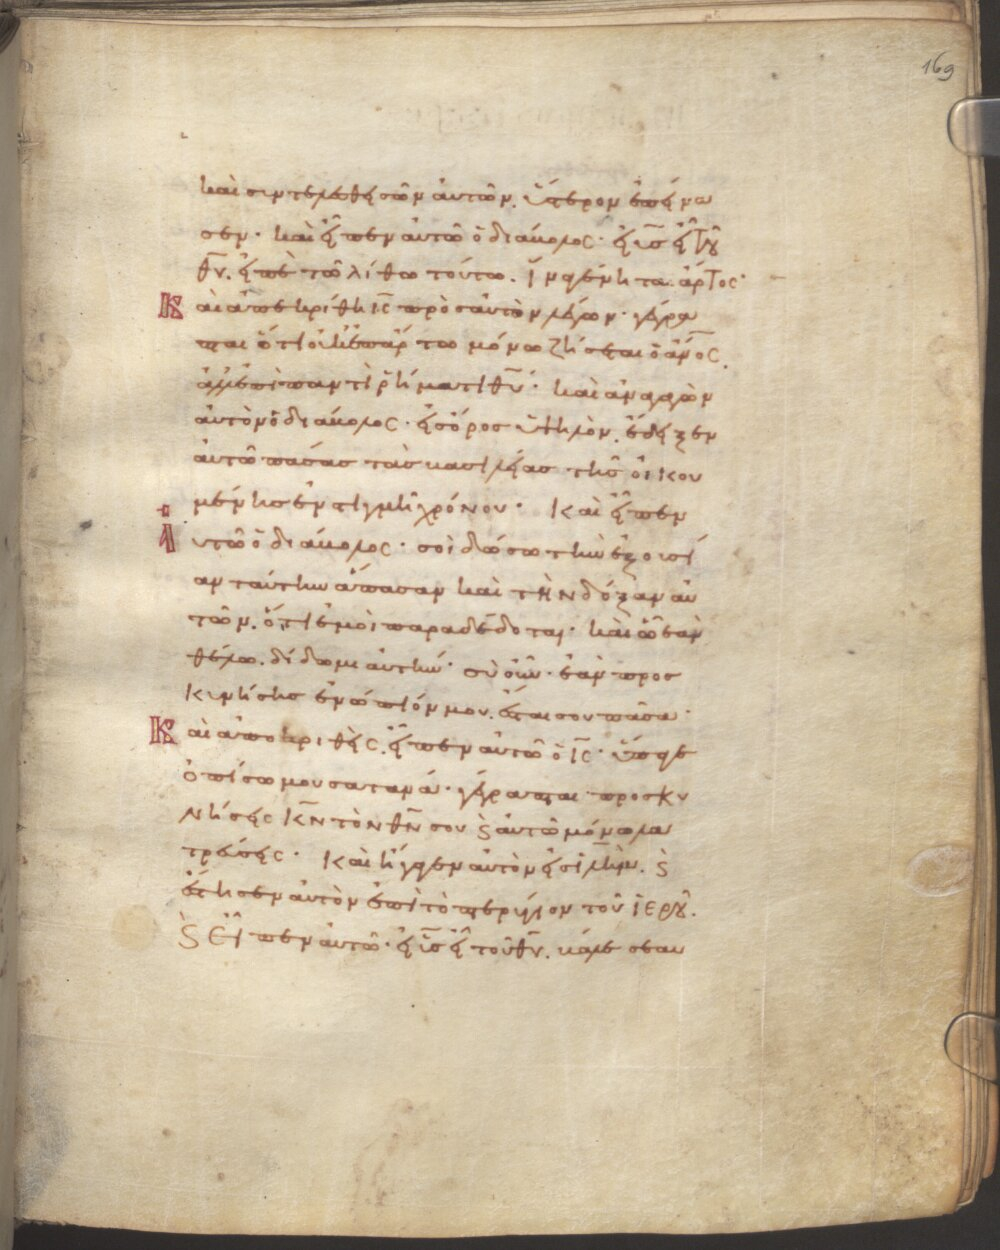 169
καὶ συντελεθεισῶν ἀυτῶν. ὕστερον ἐπείνα
σεν· καὶ εἶπεν αὐτῶ ὁ διάβολος· εἰ υσ εἶ τοῦ
θυ. εἰπὲ τῶ λίθω τούτω. ἵνα γένηται ἄρτος·
Και ἀπεκρίθη ις πρὸσ αὐτὸν λέγων· γέγρα
πται ὅτι οὐκ ἐπ ἄρτω μόνω ζήσεται ὁ ανος.
ἀλλ ἐπὶ παντὶ ρήματι θυ· καὶ ἀναγαγὼν
ἀυτὸν ὁ διάβολος· εἰσ ὄρος ὑψηλὸν. ἔδειξεν
ἀυτῶ πάσας τὰσ βασιλείας τῆσ οἰκου
μένησ ἐν στιγμῆ χρόνου· Καὶ εἶπεν
ἀυτῶ ὁ διάβολος· σοὶ δώσω τὴν ἐξουσί
αν ταύτην ἅπασαν καὶ τὴν δόξαν αὐ
τῶν. ὅτι ἐμοὶ παραδέδοται· καὶ ὧ ἐὰν
θέλω. δίδωμι αὐτήν· σὺ οὖν· ἐὰν προσ
κυνήσησ ἐνώπιόν μου. ἔσται σου πᾶσα·
Και ἀποκριθεὶς. εἶπεν αὐτῶ ὁ ις· ὕπαγε
ὀπίσω μου σατανᾶ· γέγραπται προσκυ
νήσεις κν τὸν θν σου ϗ αὐτῶ μόνω λα
τρεύσεις· Καὶ ἤγαγεν αὐτὸν εἰσ ιλημ. ϗ
ἔστησεν αὐτὸν ἐπὶ τὸ πτερύγιον τοῦ ἱεροῦ.
ϗ εἶπεν αὐτῶ· εἰ υσ εἶ τοῦ θυ. βάλε σεαυ